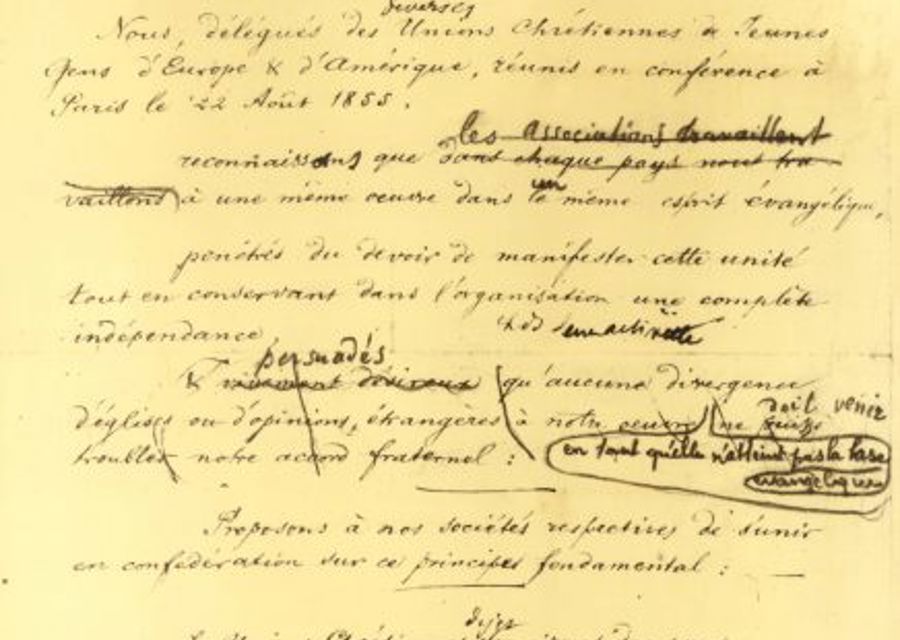 diverses
Nous, délégués des Unions Chrétiennes de Jeunes
Gens d'Europe & d'Amérique, réunis en conférence à
Paris le 22 Août 1855.
les associations travaillent
reconnaissons que dans chaque pays nous tra
vaillons à une même oeuvre dans le même esprit évangélique,
un
pénétrés du devoir de manifester cette unité
tout en conservant dans l'organisation une complète
indépendance
persuadés
& vivement désireux qu'aucune divergence
doit venir
d'églises ou d'opinions, étrangères à notre oeuvre, ne puisse
troubler notre accord fraternel : en tant qu'elle n'atteint pas la base
évangélique
Proposons à nos sociétés respectives de s'unir
en confédération sur ce principe fondamental :